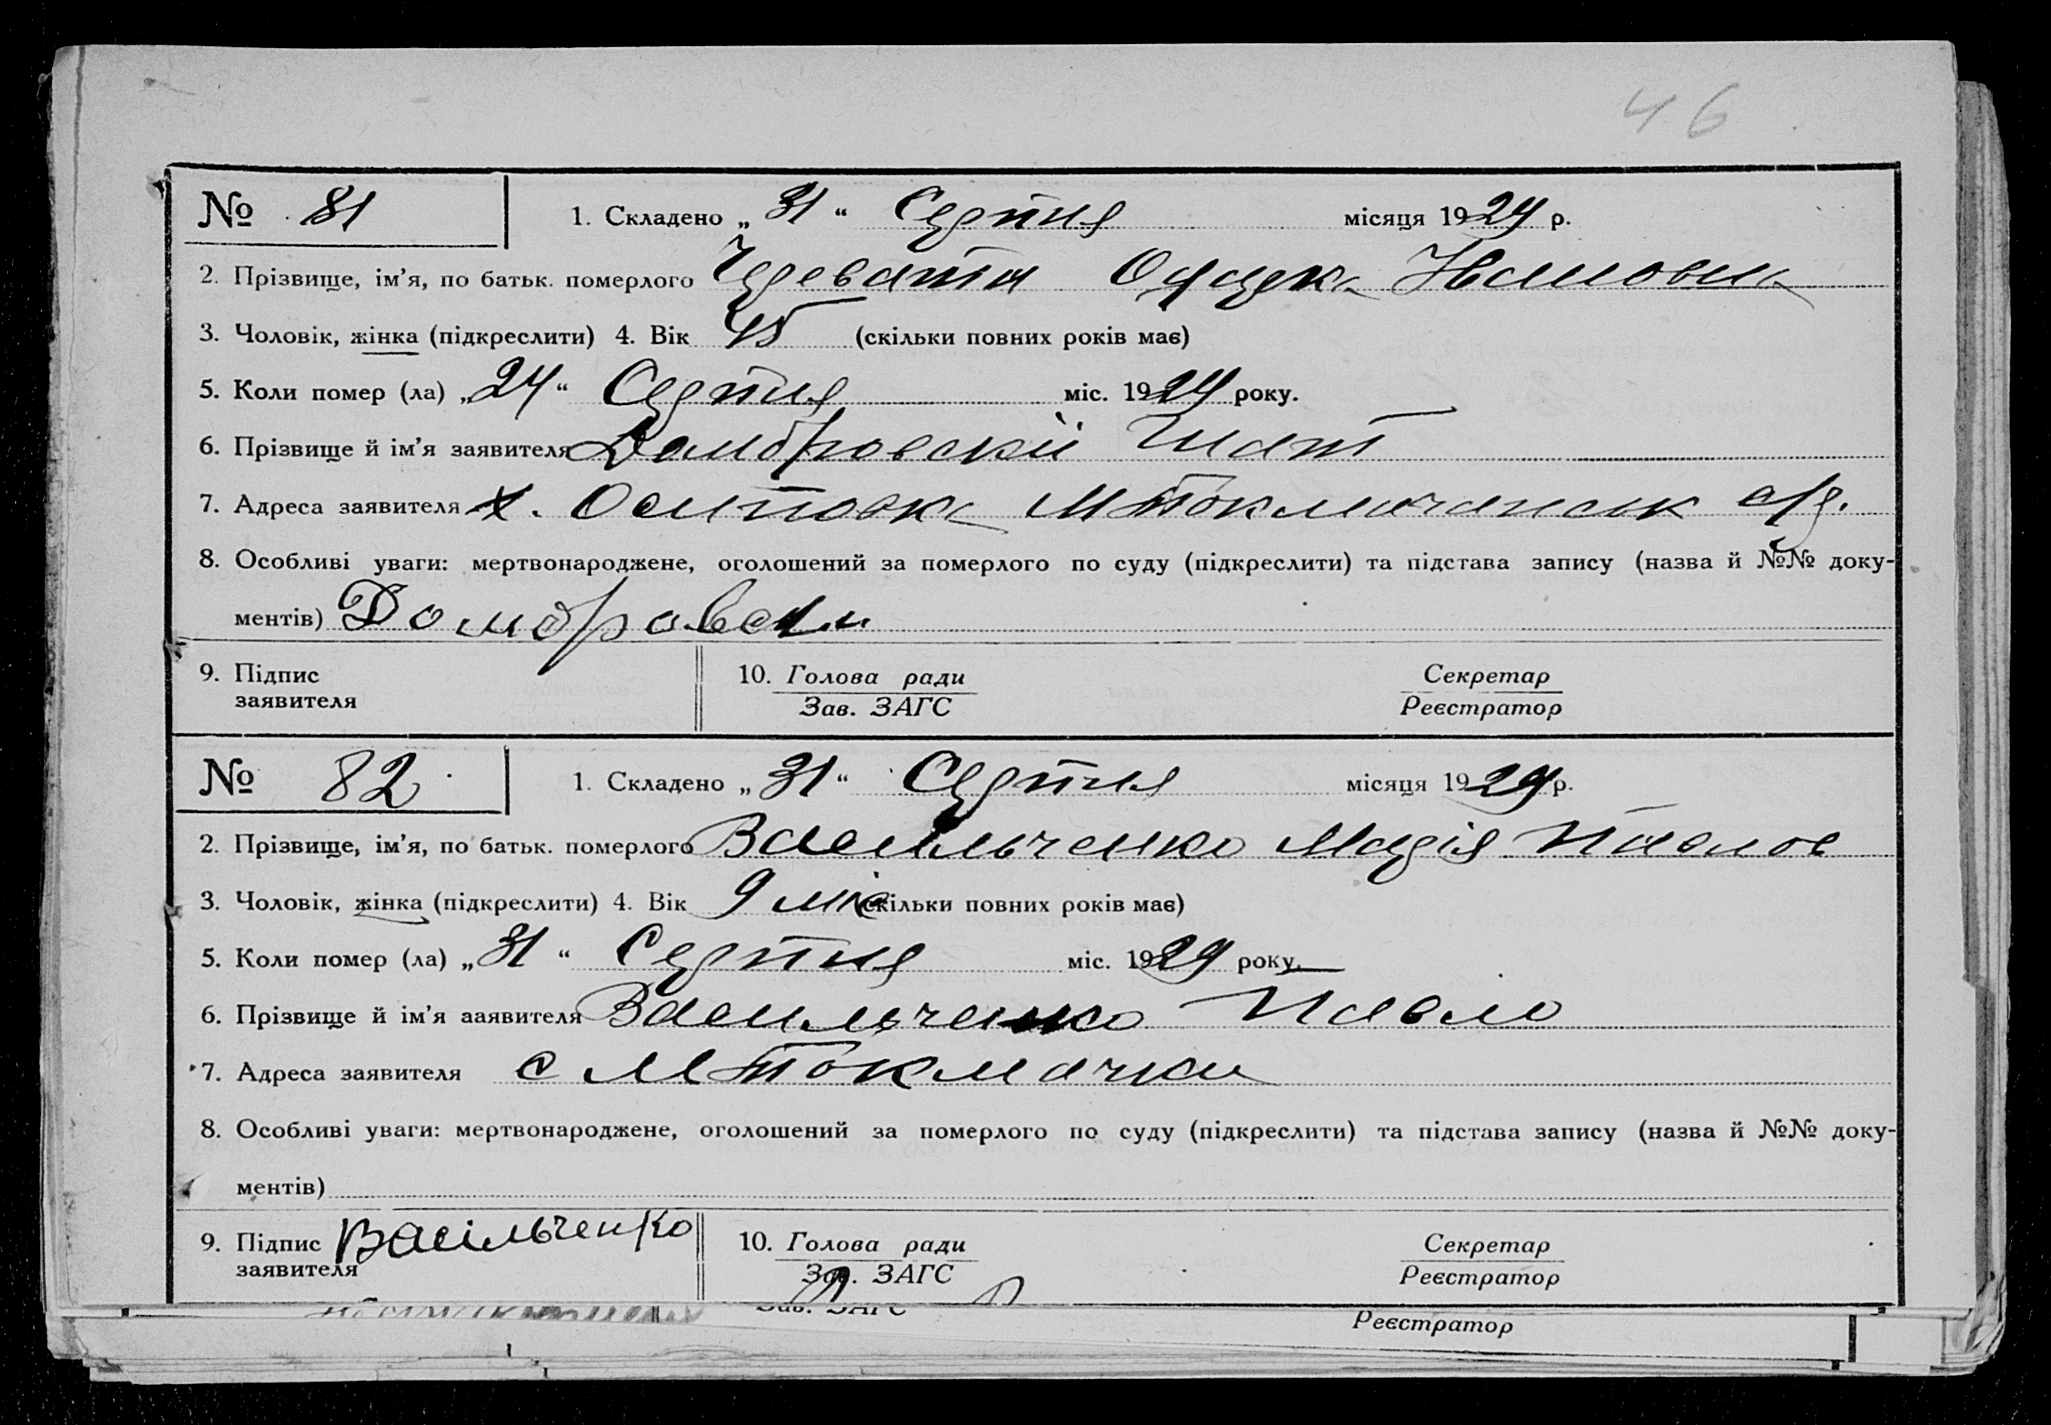 46
№ 81 1. Складено „31“ Серпня місяця 1929 р.
2. Прізвище, ім’я, по батьк. померлого Черевата Одарка Ивановна
3. Чоловік, жінка (підкреслити) 4. Вік 45 (скільки повних років має)
5. Коли помер (ла) „24“ Серпня міс. 1929 року.
6. Прізвище й ім’я заявителя Домбровскій Игнат
7. Адреса заявителя х. Осиповка МТокмачанськ с/р.
8. Особливі уваги: мертвонароджене, оголошений за померлого по суду (підкреслити) та підстава запису (назва й №№ доку-
ментів)
9. Підпис 10. Голова ради Секретар
заявителя Зав. ЗАГС Реєстратор
№ 82 1. Складено „31“ Серпня місяця 1929 р.
2. Прізвище, ім’я, по батьк. померлого Васильченко Марія Павлов
3. Чоловік, жінка (підкреслити) 4. Вік 9 міс (скільки повних років має)
5. Коли помер (ла) „31“ Серпня міс. 1929 року.
6. Прізвище й ім’я заявителя Васильченко Павло
7. Адреса заявителя с МТокмачка
8. Особливі уваги: мертвонароджене, оголошений за померлого по суду (підкреслити) та підстава запису (назва й №№ доку-
ментів)
9. Підпис Васільченко 10. Голова ради Секретар
заявителя Зав. ЗАГС Реєстратор
Зав. ЗАГС Реєстратор